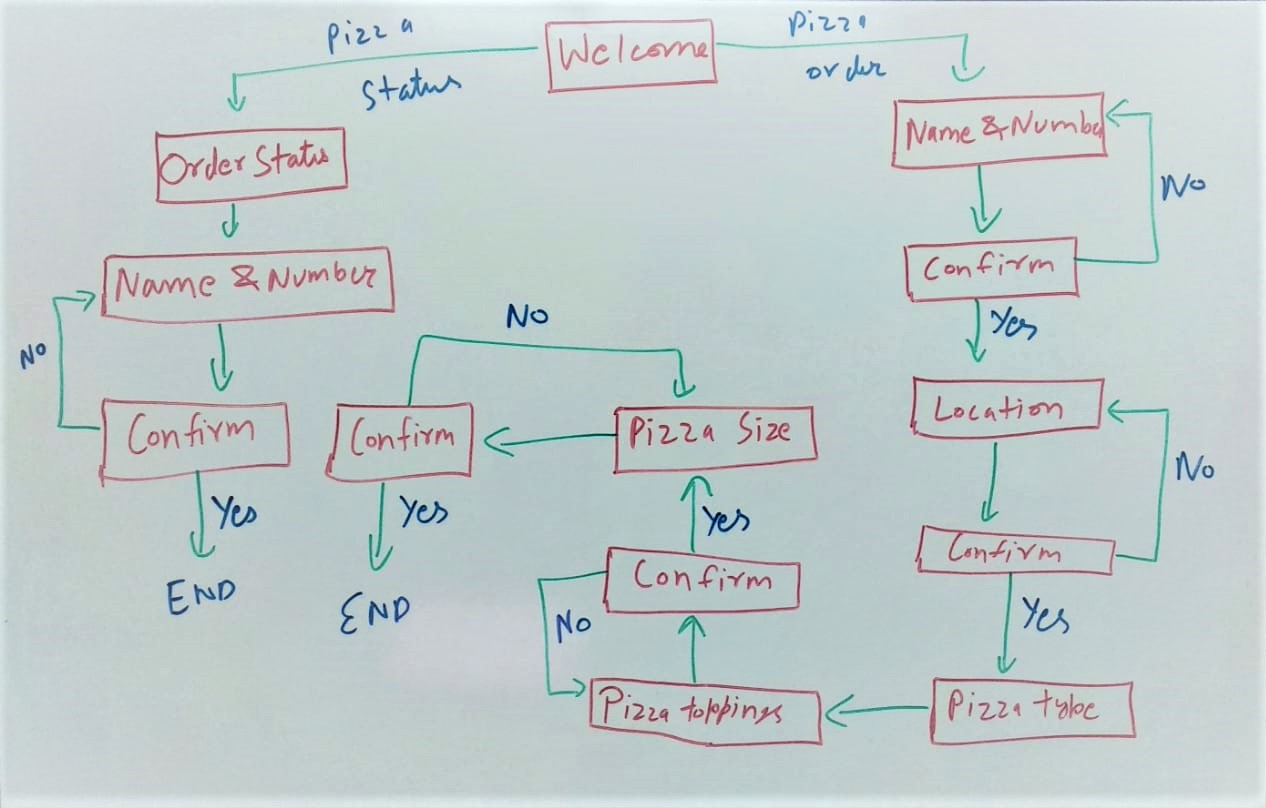 Pizza
Status
Welcome
Pizza
order
Order Status
Name & Number
No
Confirm
Yes
END
Name & Numbe
No
Confirm
Yes
Location
No
Confirm
Yes
Pizza type
Pizza toppings
No
Confirm
Yes
Pizza Size
No
Confirm
Yes
END